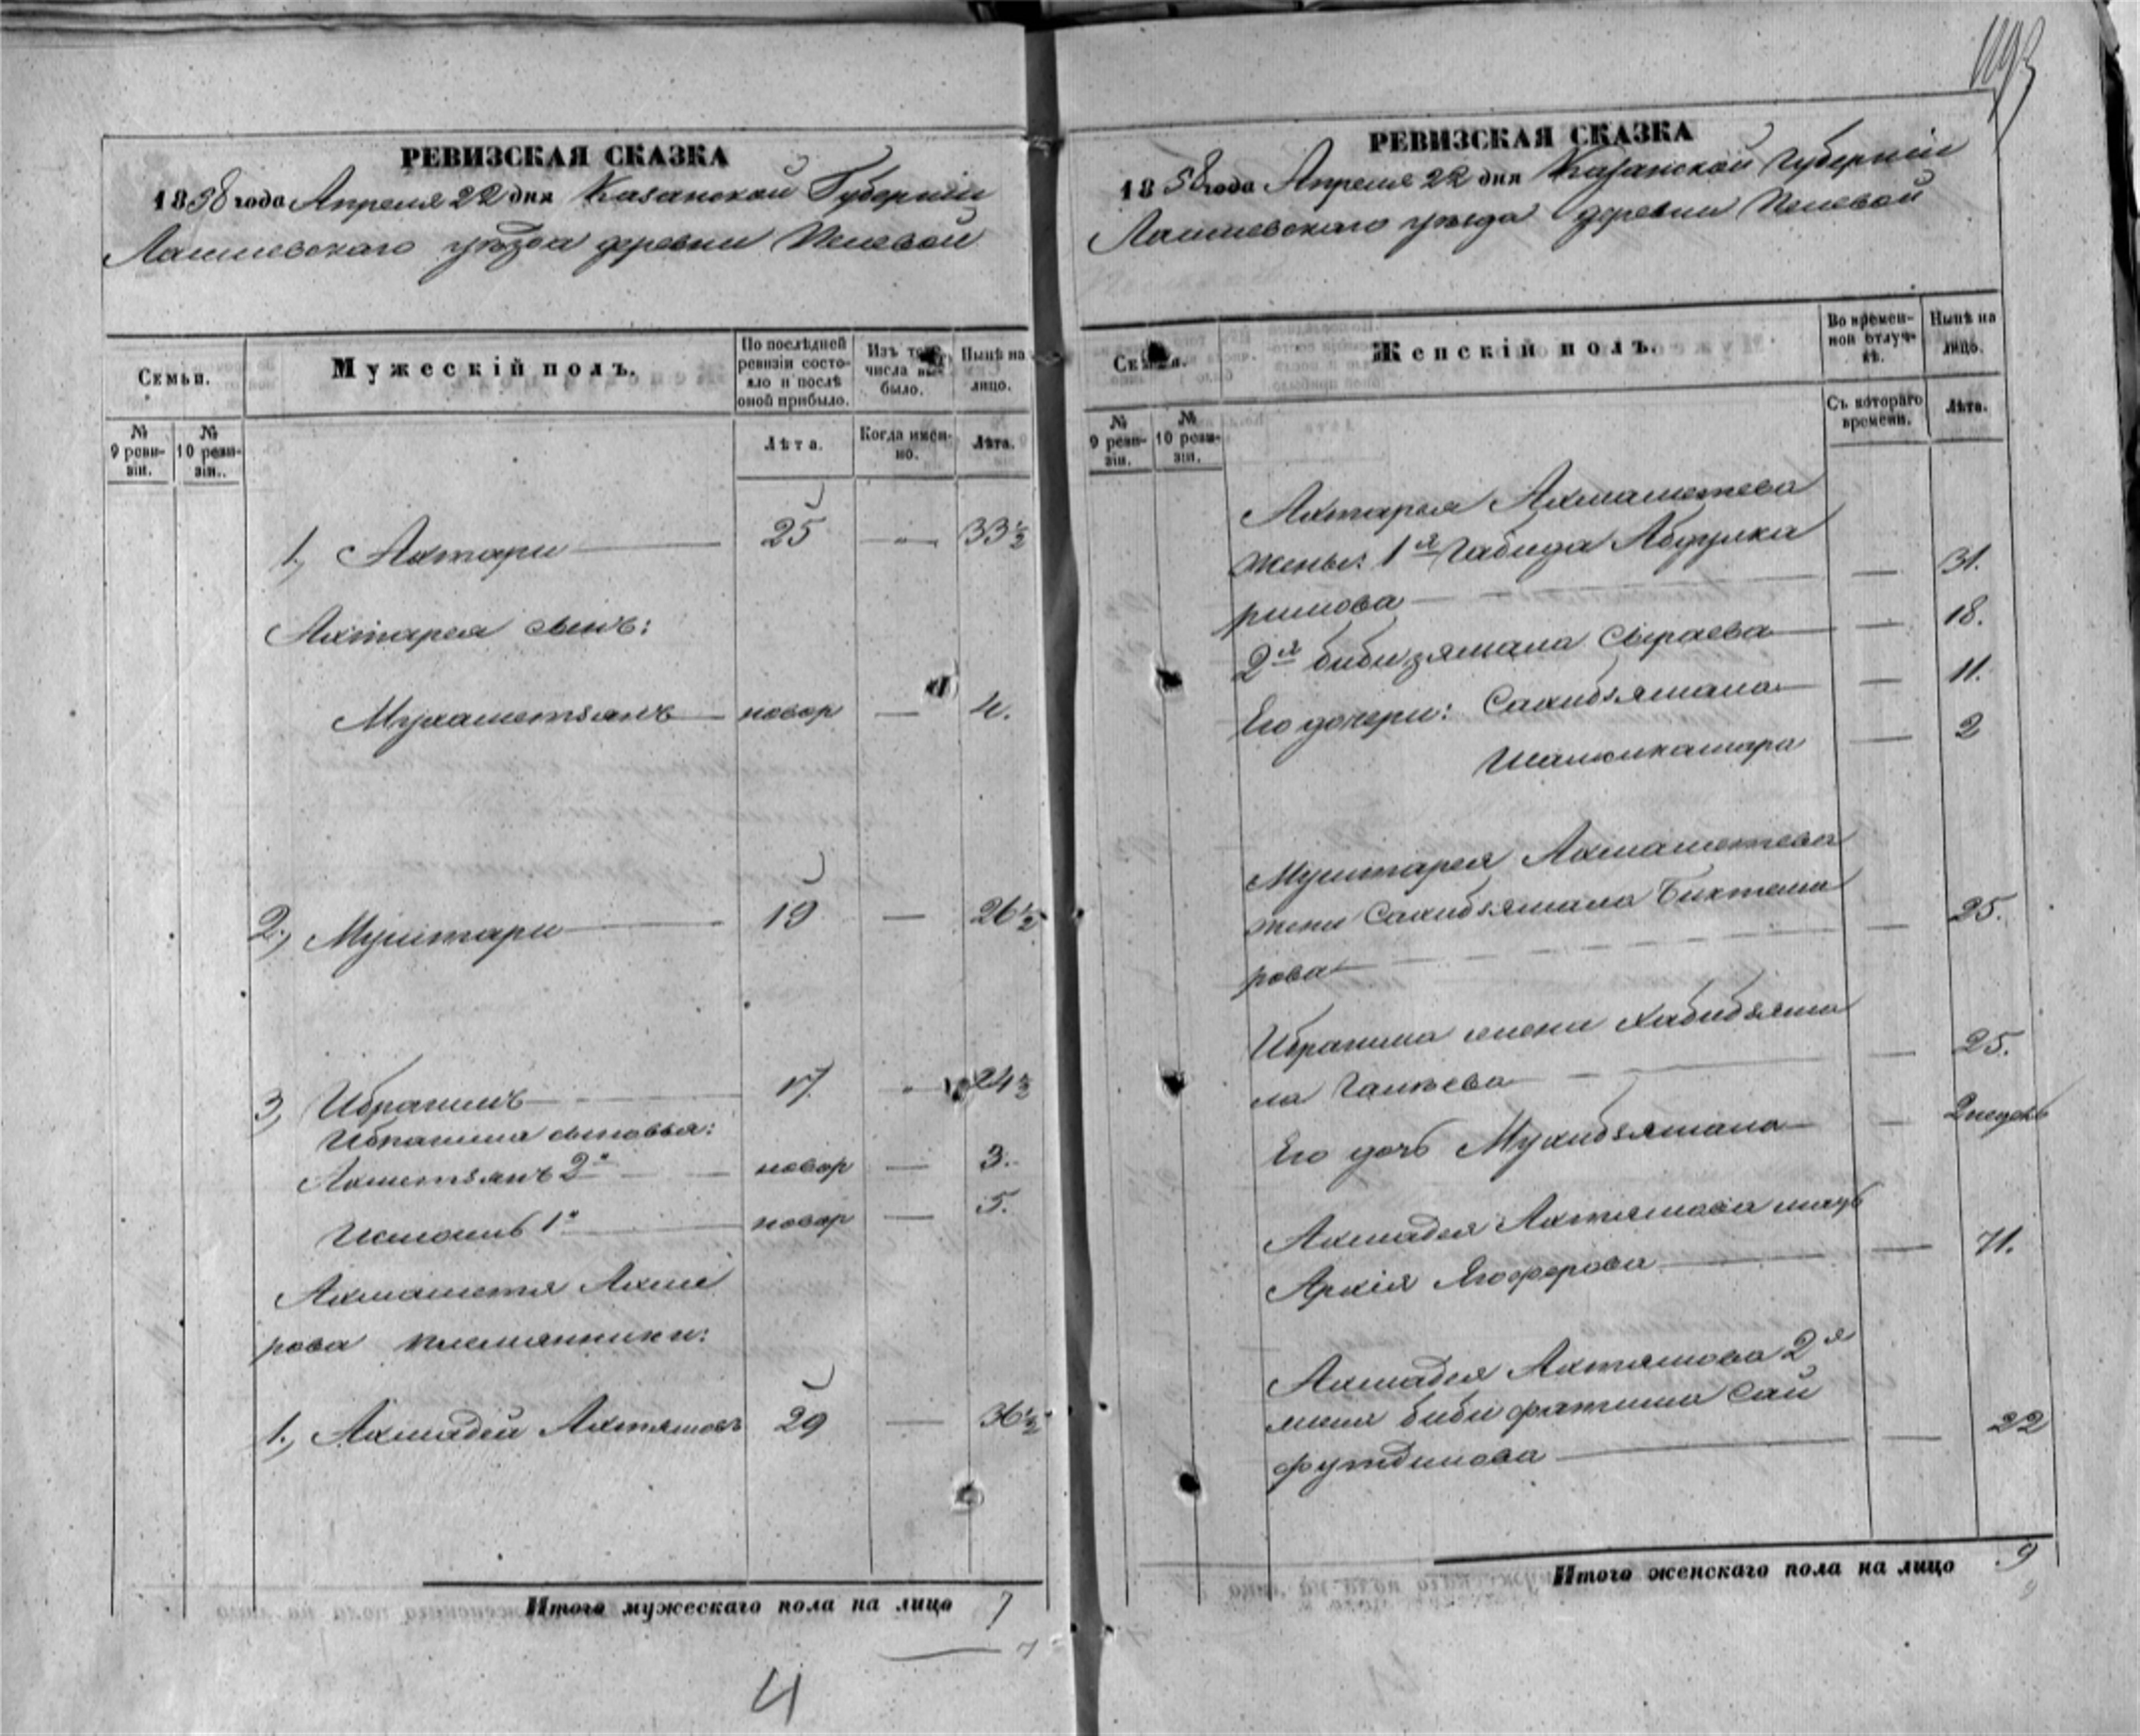 1193
РЕВИЗСКАЯ СКАЗКА
1858 года Апреля 22 дня Казанской Губерніи
Лаишевскаго уѣзда деревни
Семьи.
Мужескій полъ.
По послѣдней ревизіи состояло и послѣ оной прибыло.
Изъ того числа выбыло.
Нынѣ на лицо.
№ 9 ревизіи.
№ 10 ревизіи.
Лѣта.
Когда именно.
Лѣта.
1, Ахтари — 25 — 33½
Ахтарея сынъ:
Мухаметзянъ — новор — 4.
2, Муштари — 19 — 26½
3, Ибрагимъ — 17. — 24½
Ибрагима сыновья:
Ахметзянъ 2й — новор — 3.
1й — новор — 5.
Ахмаметя Ахме
рова племянники:
1, Ахмадей Ахтямовъ 29 — 36½
Итого мужескаго пола на лицо 7
7
4
РЕВИЗСКАЯ СКАЗКА
1858 года Апреля 22 дня Казанской Губерніи
Лаишевскаго уѣзда деревни
Семьи.
Женскій полъ.
Во временной отлучкѣ.
Нынѣ на лицо.
№ 9 ревизіи.
№ 10 ревизіи.
Съ котораго времени.
Лѣта.
Ахтарея Ахмаметева
жены: 1я Габида Абдулка
римова — — 31.
2я Бибизямала Сыраева — 18.
Его дочери: Сахибзямала — 11.
Шамсикамара — 2
Муштарея Ахмаметева
жена Сахибзямала Бихтеми
рова — — 25.
Ибрагима жена Хабибзяма
ла Галеева — — 25.
Его дочь Мухибзямала — 2 недель
Ахмадея Ахтямова мать
Аркія Ягоферова — 71.
Ахмадея Ахтямова 2я
жена Биби фатима Сай
футдинова — — 22
Итого женскаго пола на лицо 9
9